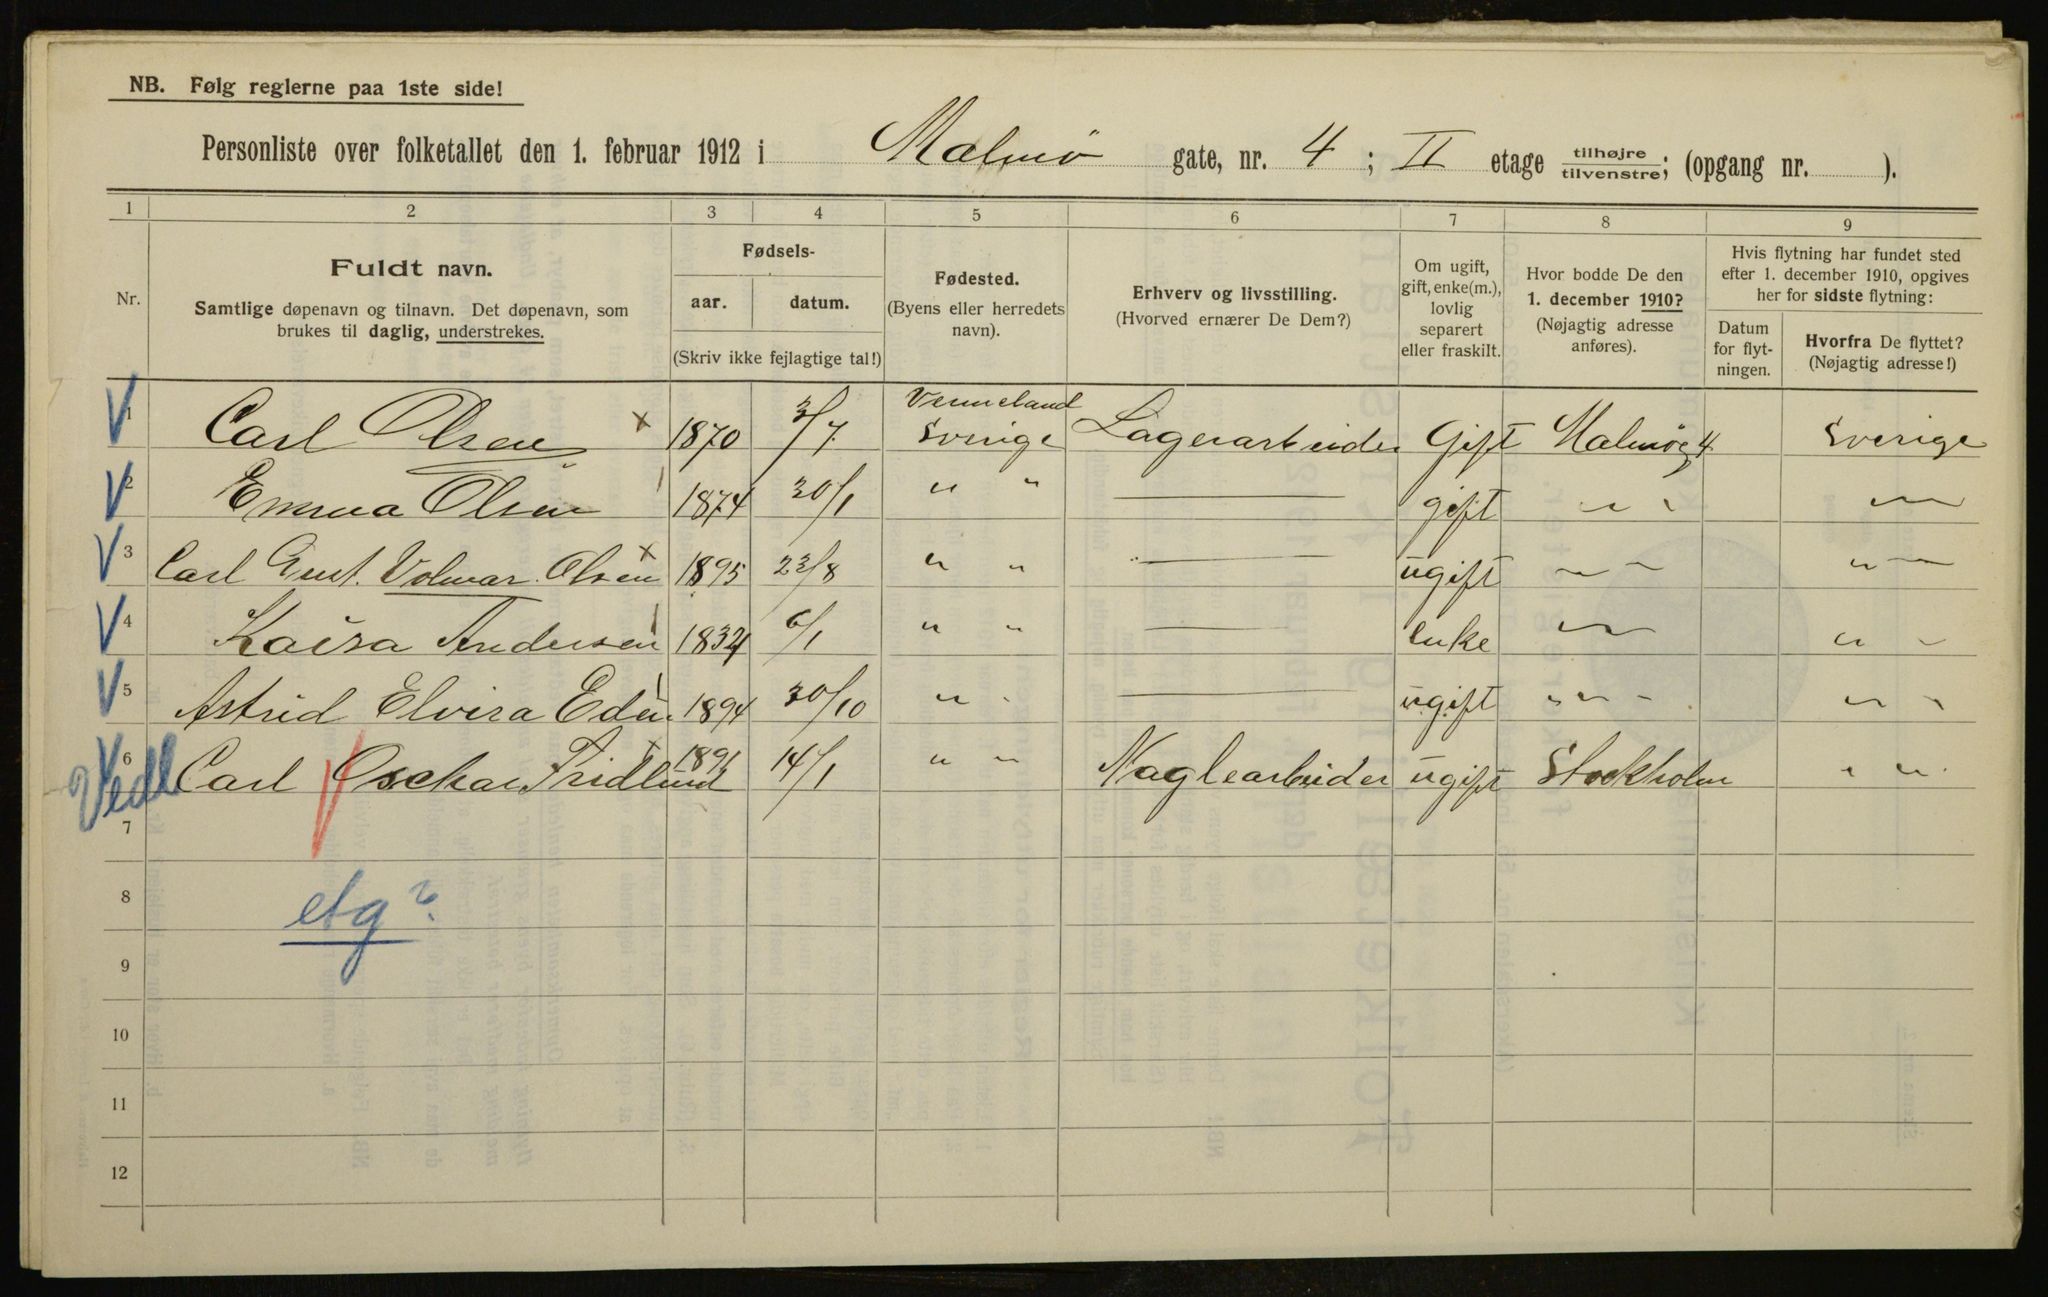 NB. Følg reglerne paa 1ste side!
Personliste over folketallet den 1. februar 1912 i Malmö gate, nr. 4 ; II etage tilhøjre/tilvenstre; (opgang nr. ).
1 2 3 4 5 6 7 8 9
Nr.
Fuldt navn.
Samtlige døpenavn og tilnavn. Det døpenavn, som
brukes til daglig, understrekes.
Fødsels-
aar. datum.
(Skriv ikke fejlagtige tal!)
Fødested.
(Byens eller herredets
navn).
Erhverv og livsstilling.
(Hvorved ernærer De Dem?)
Om ugift,
gift, enke(m.),
lovlig
separert
eller fraskilt.
Hvor bodde De den
1. december 1910?
(Nøjagtig adresse
anføres).
Hvis flytning har fundet sted
efter 1. december 1910, opgives
her for sidste flytning:
Datum
for flyt-
ningen.
Hvorfra De flyttet?
(Nøjagtig adresse!)
Vermeland
V 1 Carl Olsen x 1870 3/7 Sverige Lagerarbeider Gift Malmög 4 Sverige
V 2 Emma Olsen 1 1874 30/1 " " — gift " " "
V 3 Carl Gust. Volmar Olsen x 1895 23/8 " " — ugift " " "
V 4 Kaisa Andersen 1 1834 6/1 " " — enke " " "
V 5 Astrid Elvira Eden 1 1894 30/10 " " — ugift " " " "
6 Carl Oschar Fridlund x 1891 14/1 " " Naglearbeider ugift Stockholm " "
Vedl
7
8
etg?
9
10
11
12